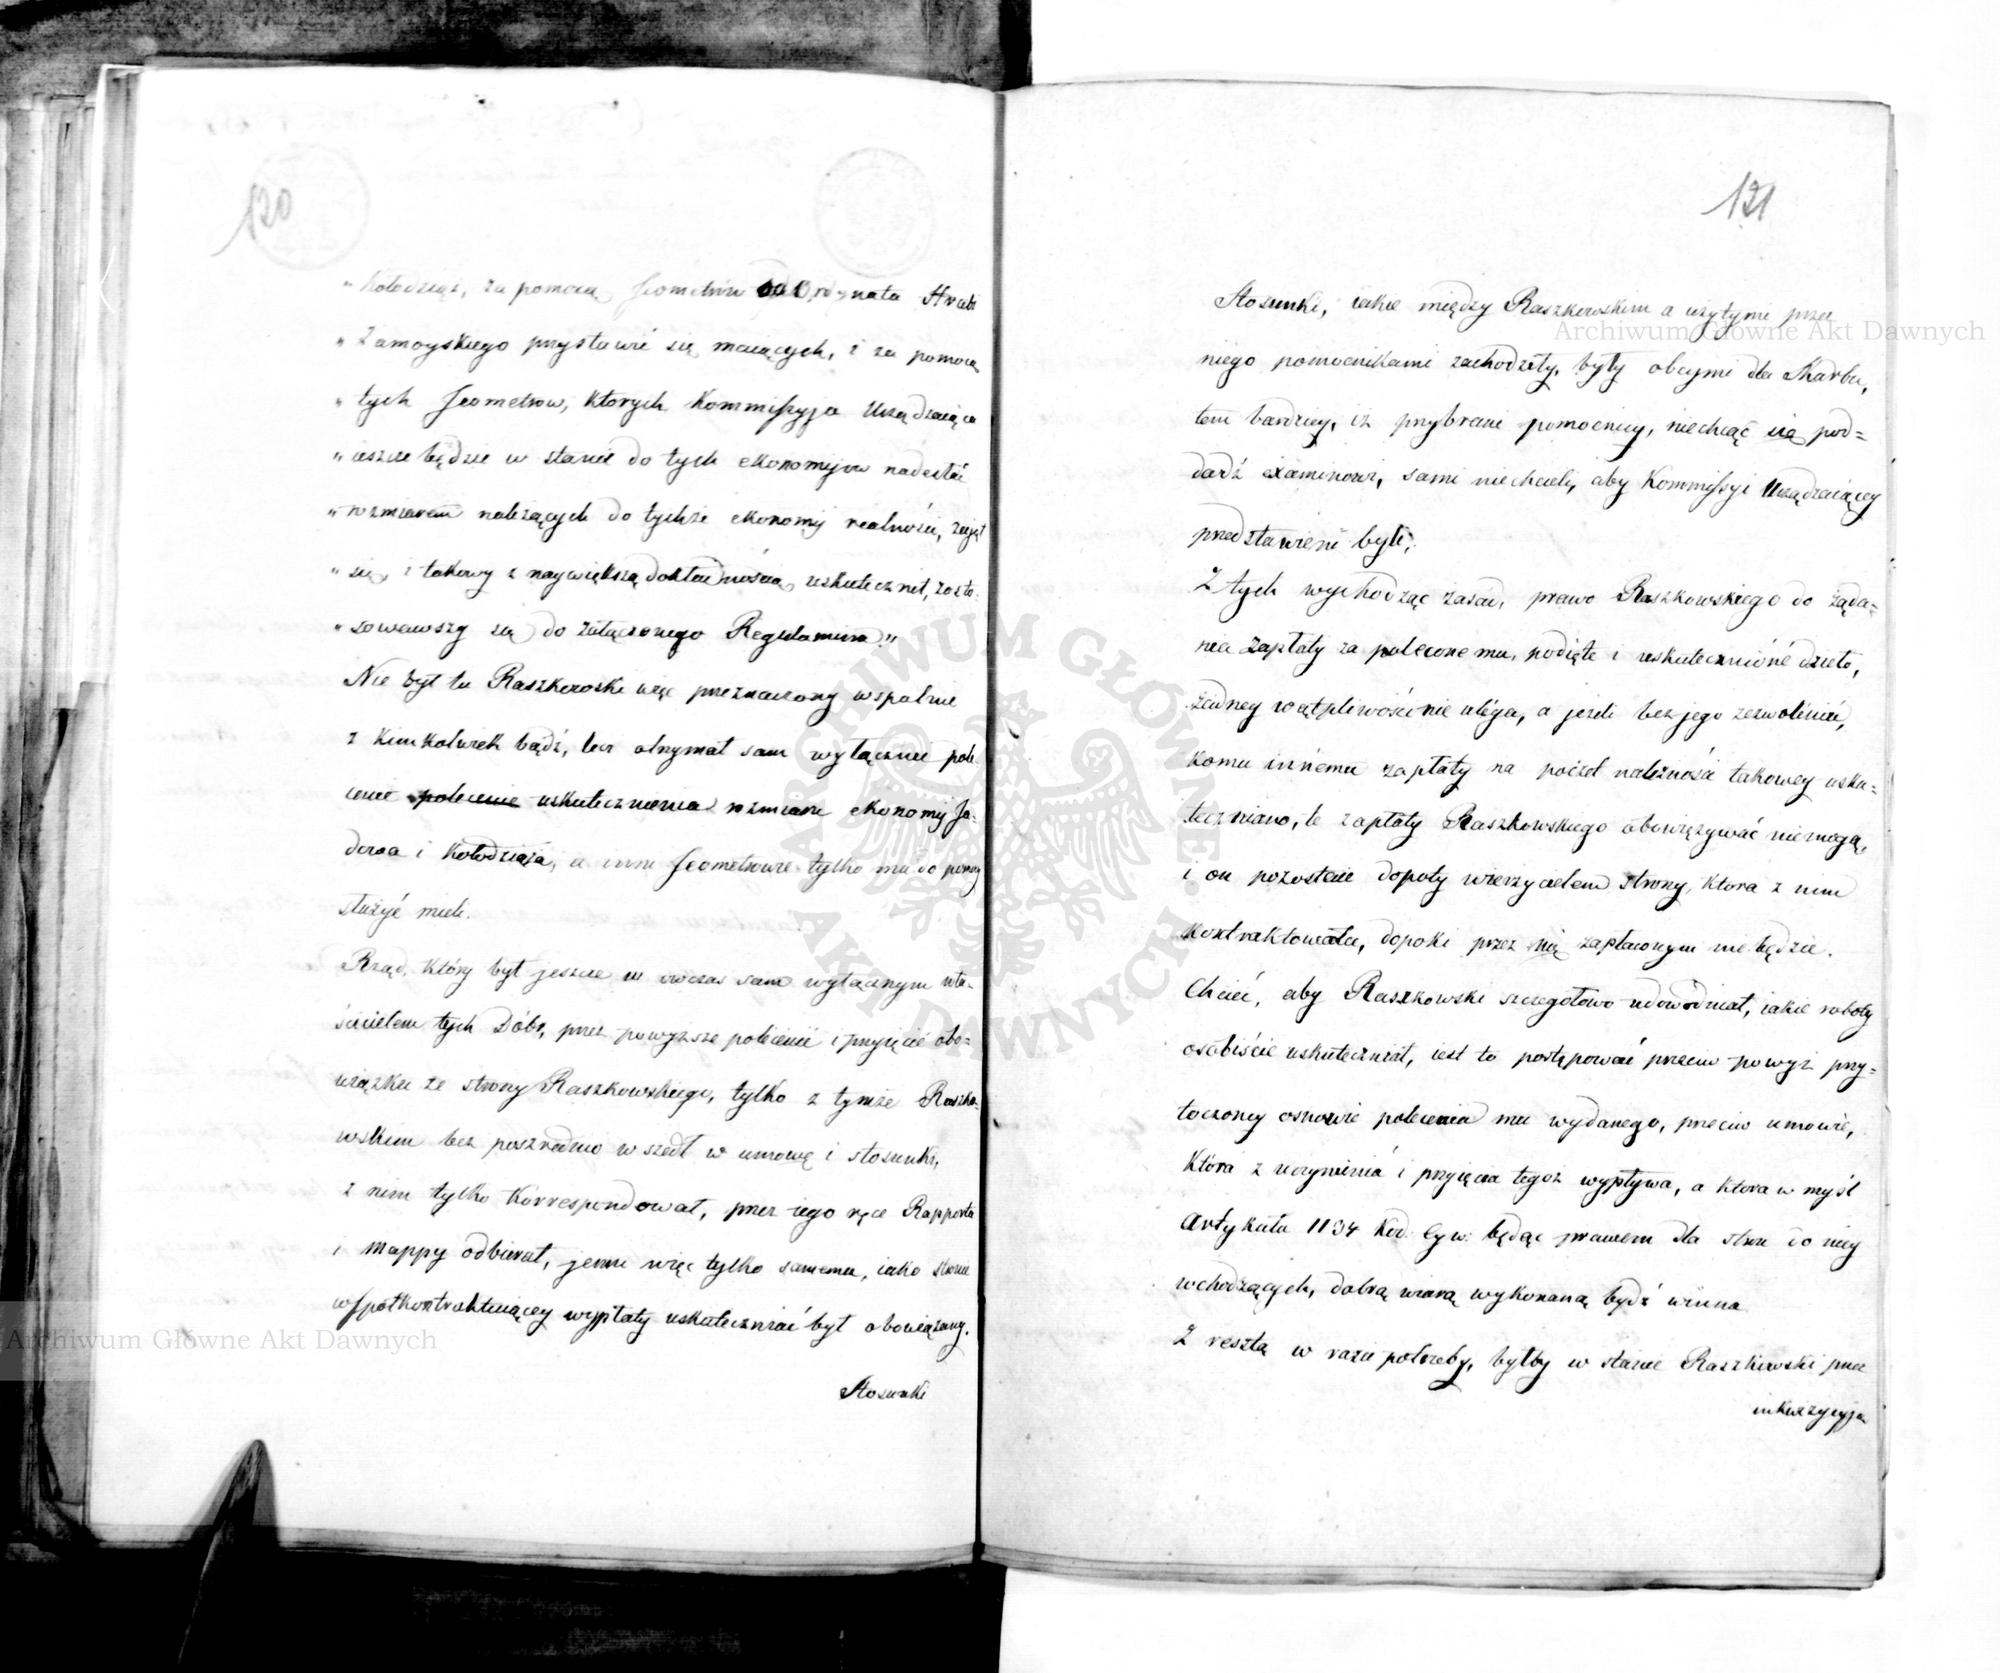 120
„Kołodziąż, za pomocą Jeometrów od Ordynata Hrabi
„Zamoyskiego przystawić się maiących, i za pomocą
„tych Jeometrow, ktorych Kommissyja Urządzaiąca
„ieszcze będzie w stanie do tych ekonomijow nadesłać
„rozmiarem należących do tychże ekonomij realności, zaiął
„się, i takowy z naywiększą dokładnością uskutecznił, zasto-
„sowawszy się do załączonego Regulaminu."
Nie był tu Raszkowski więc przeznaczony wspolnie
z kimkolwiek bądź, lecz otrzymał sam wyłącznie pole
cenie polecenie uskutecznienia rozmiaru ekonomij Ja-
dowa i Kołodziąża, a inni Jeometrowie tylko mu do pomocy
służyć mieli.
Rząd, który był jeszcze w owczas sam wyłącznym wła-
ścicielem tych Dóbr, przez powyższe polecenie i przyięcie obo-
wiązku ze strony Raszkowskiego, tylko z tymże Raszko-
wskim bez poszrednio wszedł w umowę i stosunki,
z nim tylko korrespondował, przez iego ręce Rapporta
i mappy odbierał, jemu więc tylko samemu, iako stronie
współkontraktuiącey wypłaty uskuteczniać był obowiązany.
Stosunki
121
Stosunki, iakie między Raszkowskim a użytymi przez
niego pomocnikami zachodziły, były obcymi dla Skarbu,
tem bardziey, iż przybrani pomocnicy, niechcąc się pod-
dadź examinowi, sami niechcieli, aby Kommissyi Urządzaiącey
przedstawieni byli;
Z tych wychodząc zasad, prawo Raszkowskiego do żąda-
nia zapłaty za polecone mu, podięte i uskutecznione dzieło,
żadney wątpliwości nie uléga, a jeżeli bez jego zezwolenia,
komu innému zapłaty na poczet należności takowey usku-
teczniano, te zapłaty Raszkowskiego obowięzywać niemogą,
i on pozostaie dopoty wierzycielem strony, ktora z nim
kontraktowała, dopoki przez nią zapłaconym nie będzie.
Chcieć, aby Raszkowski szczegołowo udowodniał, iakie roboty
osobiście uskuteczniał, iest to postępować przeciw powyż przy-
toczoney osnowie polecenia mu wydanego, przeciw umowie,
która z uczynienia i przyięcia tegoż wypływa, a ktora w myśl
Artykułu 1134 Kod. Cyw: będąc prawem dla stron do niey
wchodzących, dobrą wiarą wykonaną bydź winna
Z resztą w razie potrzeby, byłby w stanie Raszkowski przez
inkwizycyją
Archiwum Główne Akt Dawnych
Archiwum Główne Akt Dawnych
ARCHIWUM GŁÓWNE AKT DAWNYCH